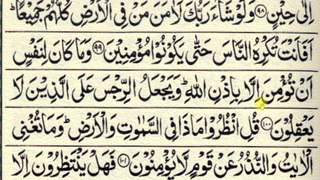 اِلٰى حِيْنٍ ۝٩٨ وَلَوْ شَآءَ رَبُّكَ لَاٰمَنَ مَنْ فِى الْاَرْضِ كُلُّهُمْ جَمِيْعًا ؕ
اَفَاَنْتَ تُكْرِهُ النَّاسَ حَتّٰى يَكُوْنُوْا مُؤْمِنِيْنَ ۝٩٩ وَمَا كَانَ لِنَفْسٍ
اَنْ تُؤْمِنَ اِلَّا بِاِذْنِ اللّٰهِ ؕ وَيَجْعَلُ الرِّجْسَ عَلَى الَّذِيْنَ لَا
يَعْقِلُوْنَ ۝١٠٠ قُلِ انْظُرُوْا مَاذَا فِى السَّمٰوٰتِ وَالْاَرْضِ ؕ وَمَا تُغْنِى
الْاٰيٰتُ وَالنُّذُرُ عَنْ قَوْمٍ لَّا يُؤْمِنُوْنَ ۝١٠١ فَهَلْ يَنْتَظِرُوْنَ اِلَّا